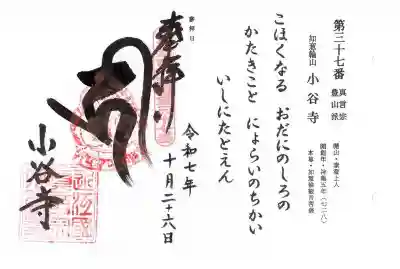 第三十七番
真言宗
豊山派
如意輪山 小谷寺
開山・泰澄上人
開創年・神亀五年(七二八)
本尊・如意輪観世音菩薩
こほくなる おだにのしろの
かたきこと によらいのちかい
いしにたとえん
参拝日
令和七年
十月二十六日
奉拝
小谷寺